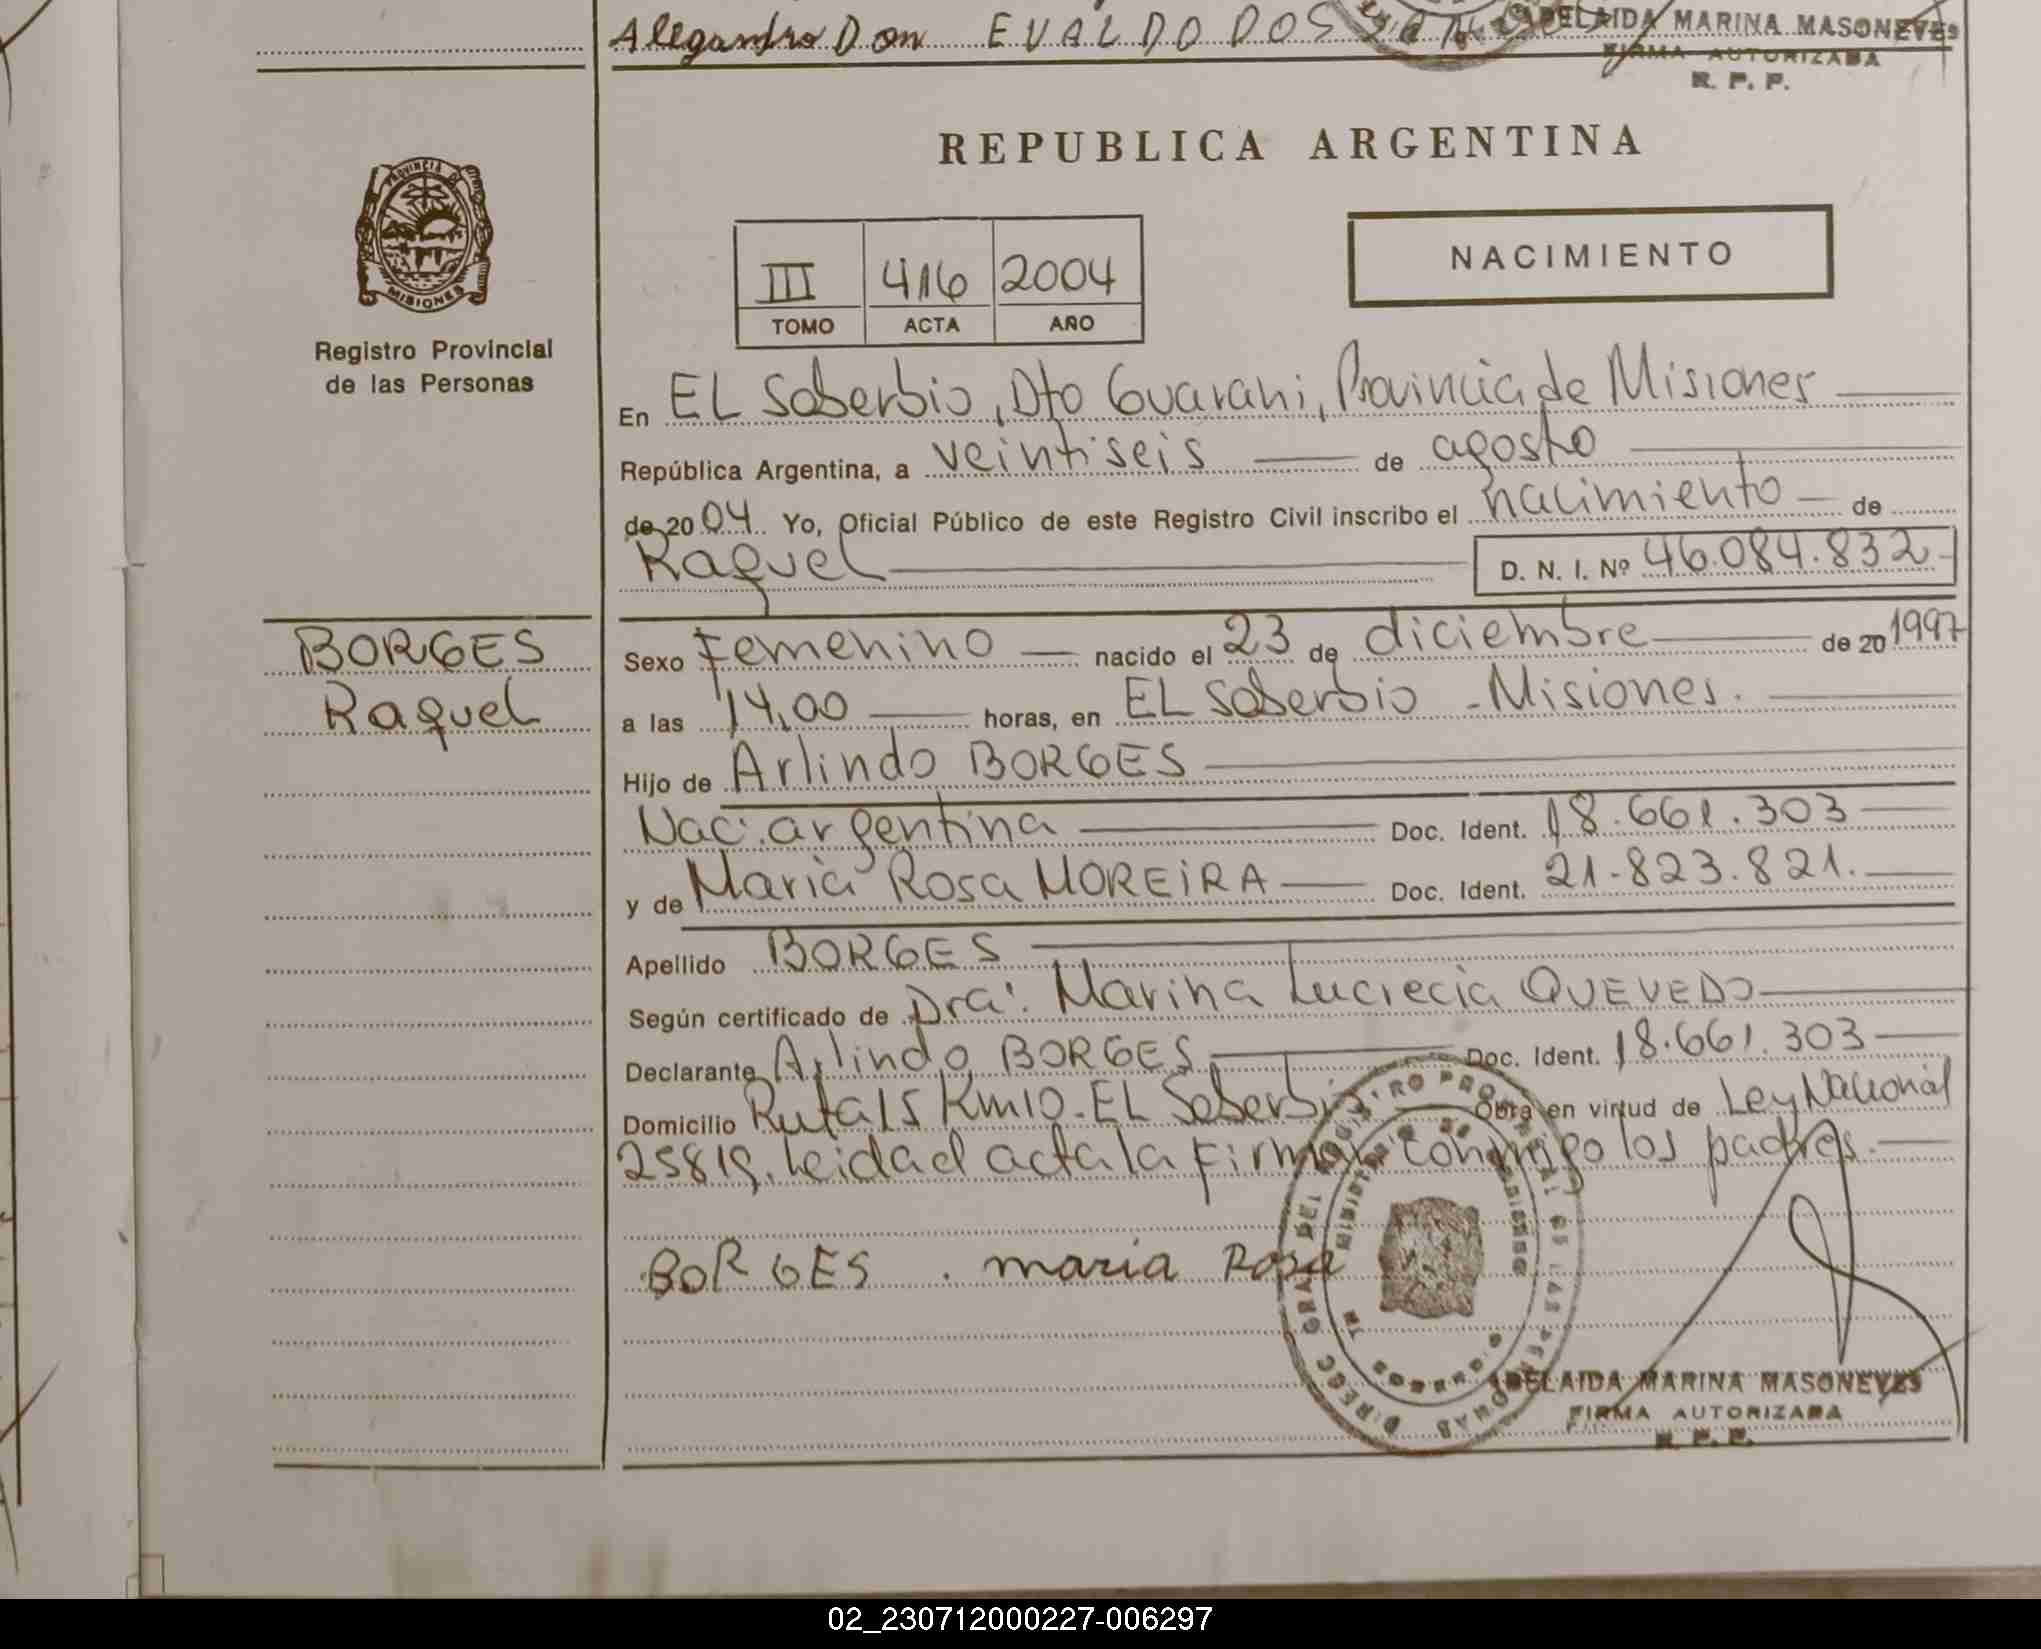 Alegandro Don EVALDO DOS
ADELAIDA MARINA MASONEVES
FIRMA AUTORIZADA
R. P. P.
PROVINCIA DE
MISIONES
Registro Provincial
de las Personas
REPUBLICA ARGENTINA
NACIMIENTO
III 416 2004
TOMO ACTA AÑO
En EL Soberbio, Dto Guarani, Provincia de Misiones
República Argentina, a veintiseis de agosto
de 2004 Yo, Oficial Público de este Registro Civil inscribo el nacimiento de
Raquel D. N. I. Nº 46.084.832
BORGES
Raquel
Sexo Femenino nacido el 23 de diciembre de 20 1997
a las 14,00 horas, en EL Soberbio - Misiones.
Hijo de Arlindo BORGES
Nac. argentina Doc. Ident. 18.661.303
y de Maria Rosa MOREIRA Doc. Ident. 21.823.821.
Apellido BORGES
Según certificado de Dra. Marina Lucrecia QUEVEDO
Declarante Arlindo BORGES Doc. Ident. 18.661.303
Domicilio Ruta 15 Km 10 - EL Soberbio. Obra en virtud de Ley Nacional
25819. Leida el acta la firman conmigo los padres.
BORGES . maria Rosa
ADELAIDA MARINA MASONEVES
FIRMA AUTORIZADA
R. P. P.
02_230712000227-006297